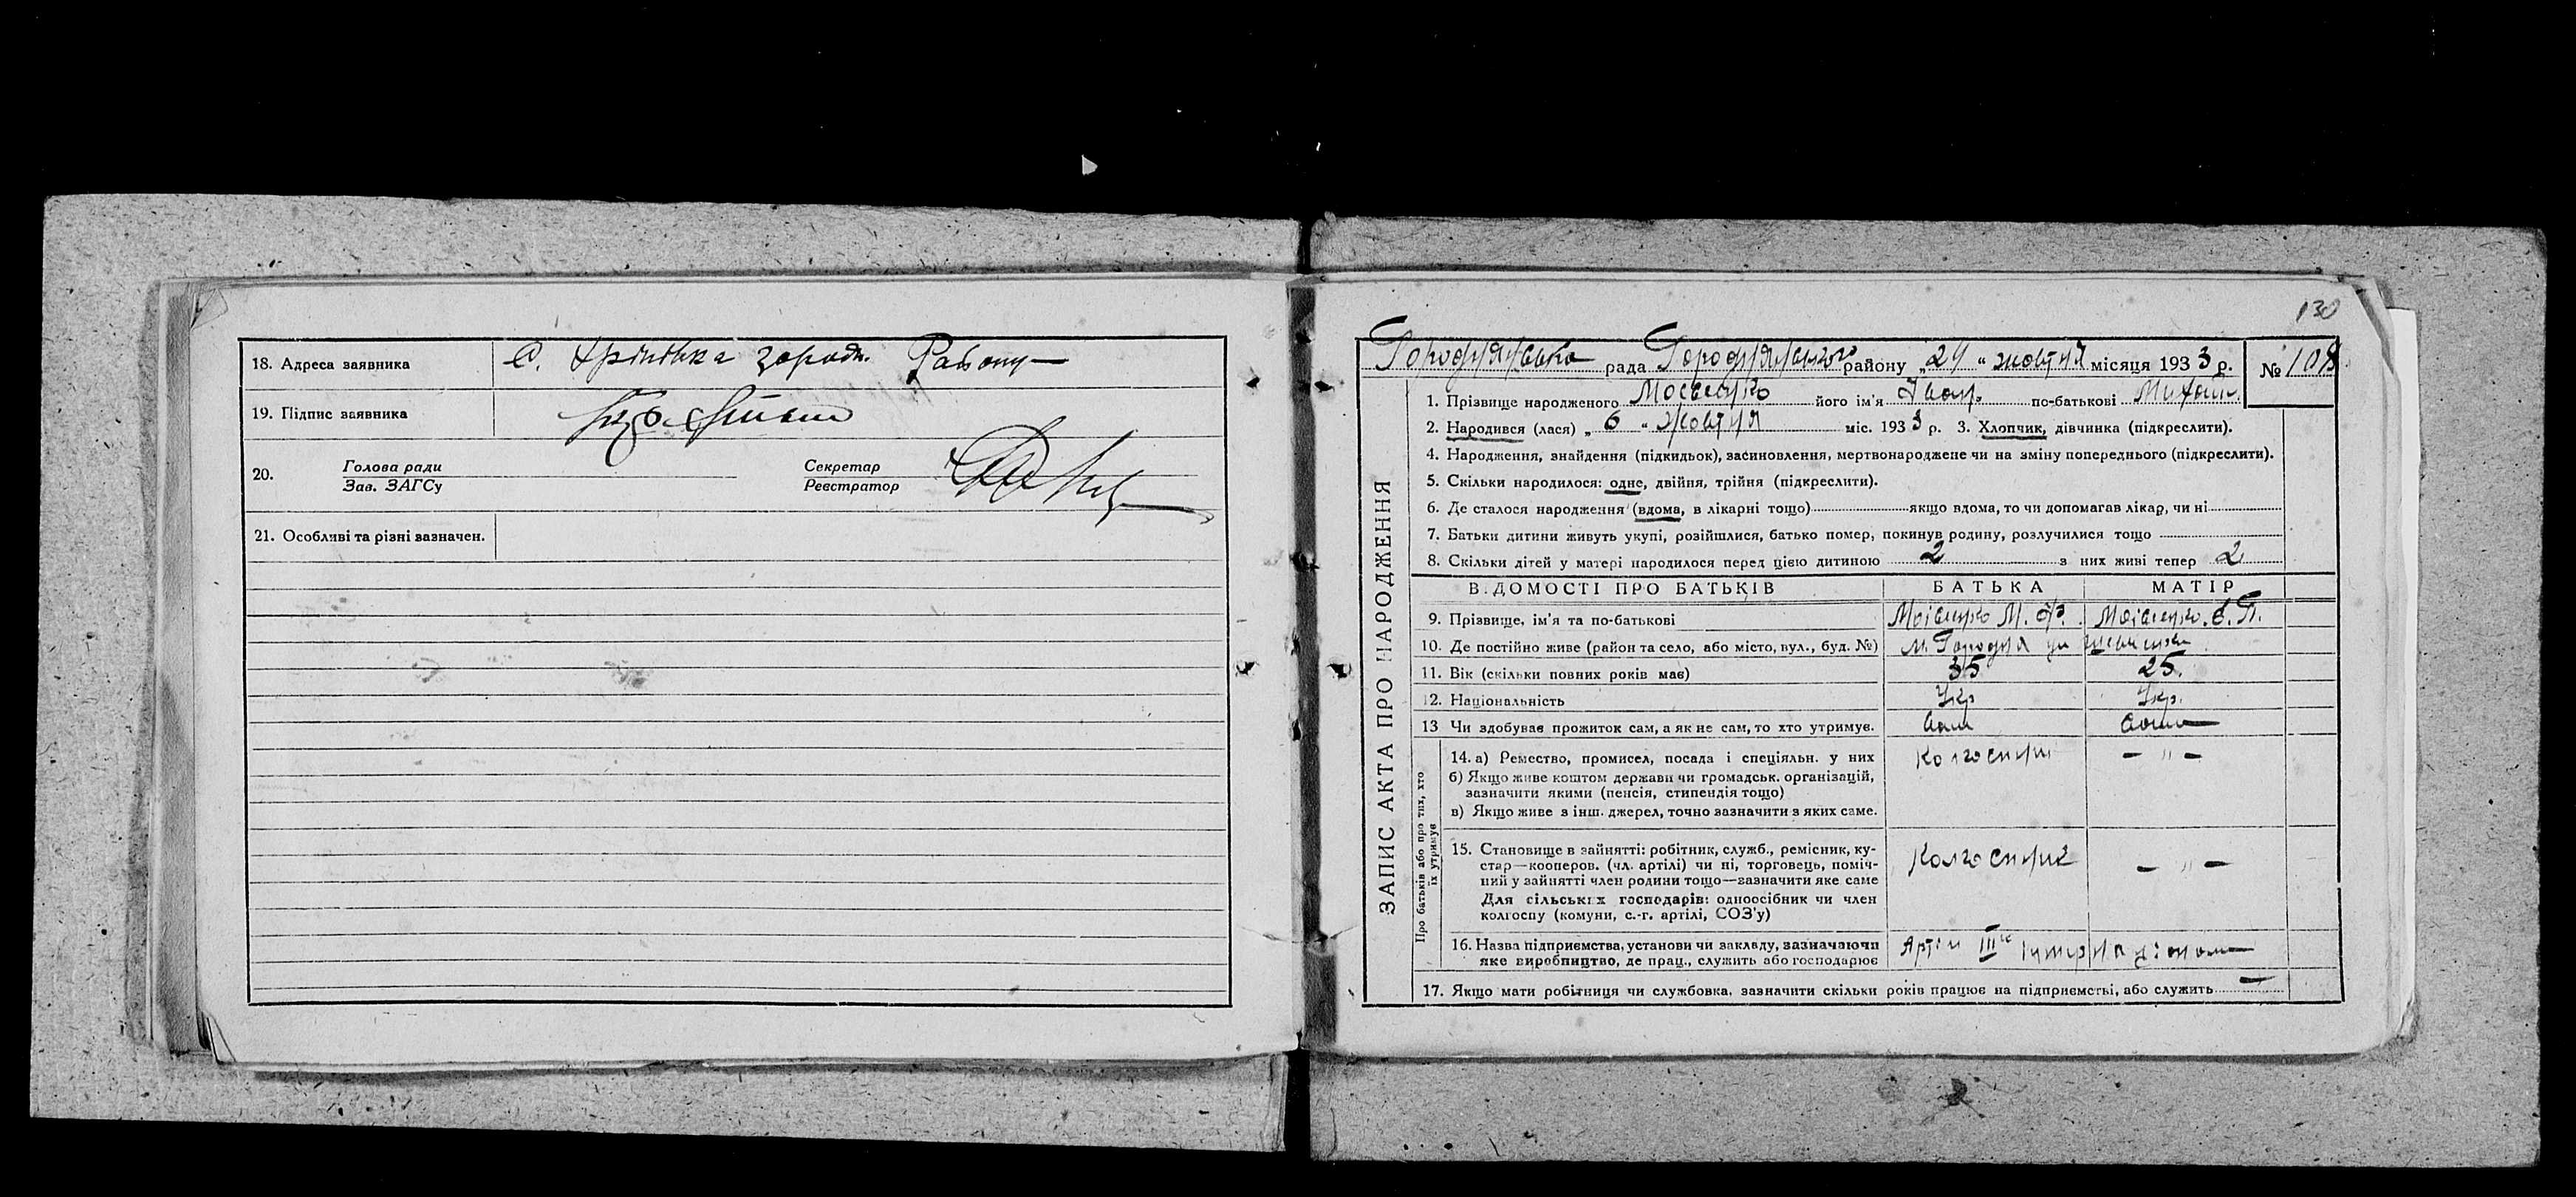 18. Адреса заявника с. Хрінівка город. Району
19. Підпис заявника
20. Голова ради
Зав. ЗАГСу
Секретар
Реєстратор
21. Особливі та різні зазначен.
130
ЗАПИС АКТА ПРО НАРОДЖЕННЯ
Городнянська рада Городнянського району „24 “ жовтня місяця 1933 р. № 108
1. Прізвище народженого Моісеєнко його ім'я Іван по-батькові Михайл.
2. Народився (лася) „ 6 “ Жовтня міс. 1933 р. 3. Хлопчик, дівчинка (підкреслити).
4. Народження, знайдення (підкидьок), засиновлення, мертвонароджене чи на зміну попереднього (підкреслити).
5. Скільки народилося: одне, двійня, трійня (підкреслити).
6. Де сталося народження (вдома, в лікарні тощо) якщо вдома, то чи допомагав лікар, чи ні
7. Батьки дитини живуть укупі, розійшлися, батько помер, покинув родину, розлучилися тощо
8. Скільки дітей у матері народилося перед цією дитиною 2 з них живі тепер 2
В.ДОМОСТІ ПРО БАТЬКІВ БАТЬКА МАТІР
9. Прізвище, ім'я та по-батькові Моісеєнко М. Моісеєнко Є. П.
10. Де постійно живе (район та село, або місто, вул., буд. №) м. Городня ул
11. Вік (скільки повних років має) 35 25.
12. Національність Укр Укр.
13 Чи здобував прожиток сам, а як не сам, то хто утримує. Сам Сама
Про батьків або про тих, хто
їх утримує
14. а) Ремество, промисел, посада і спеціяльн. у них Колгоспник — „ —
б) Якщо живе коштом держави чи громадськ. організацій,
зазначити якими (пенсія, стипендія тощо)
в) Якщо живе з інш. джерел, точно зазначити з яких саме.
15. Становище в зайнятті: робітник, служб., ремісник, ку-
стар—кооперов. (чл. артілі) чи ні, торговець, поміч-
ний у зайнятті член родини тощо—зазначити яке саме
Для сільських господарів: одноосібник чи член
колгоспу (комуни, с.-г. артілі, СОЗ'у)
Колгоспник — „ —
16. Назва підприємства, установи чи закладу, зазначаючи
яке виробництво, де прац., служить або господарює
Артіл III Інтернаціонал
17. Якщо мати робітниця чи службовка, зазначити скільки років працює на підприємстві, або служить —